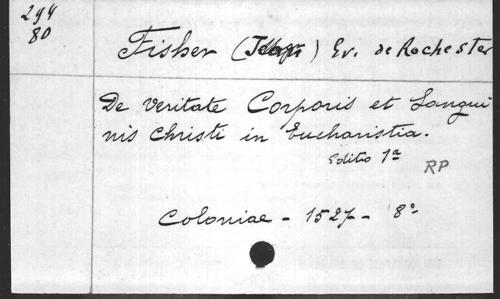 294
80
Fisher () Ev. de Rochester
De veritate Corporis et Sangui
nis Christi in Eucharistia.
Editio 1ª
RP
Coloniae - 1527 - 8º